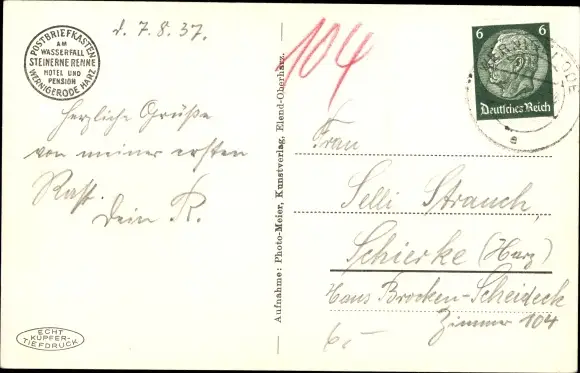 POSTBRIEFKASTEN
AM
WASSERFALL
STEINERNE RENNE
HOTEL UND
PENSION
WERNIGERODE HARZ
d. 7. 8. 37.
Herzliche Grüße
von meiner ersten
Rast.
Dein R.
ECHT
KUPFER-
TIEFDRUCK
Aufnahme: Photo-Meier, Kunstverlag, Elend-Oberharz.
104
6 6
Deutsches Reich
WERNIGERODE
e
Frau
Selli Strauch,
Schierke (Harz)
Haus Brocken-Scheideck
Zimmer 104